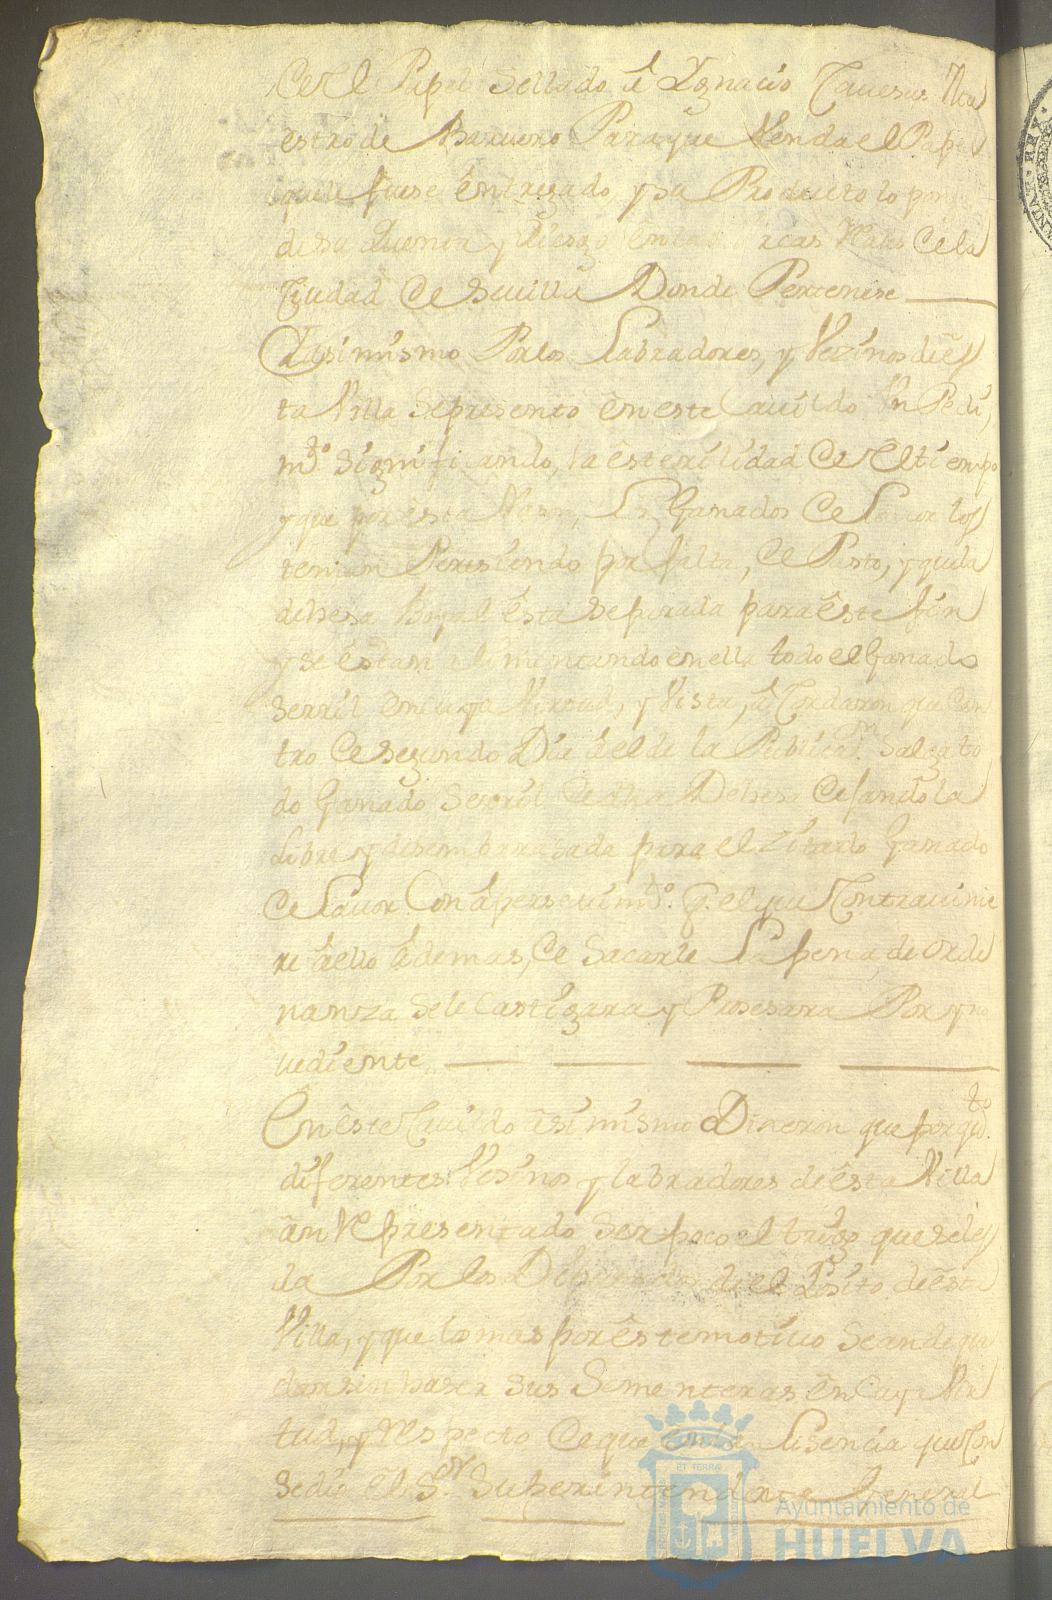 de el Papel Sellado â Ygnacio
estro de Barvero Para que Venda el Papel
que le fuese êntregado y su Producto lo pon
de su quenta y Riesgo en Arcas Rales de la
Ciudad de Sevilla Donde Pertenese
Asimismo Por los Labradores, y Vezinos de es
ta Villa Se presento ên este Cavildo Un Pedi
mto. Significando, la êsterilidad de el tiempo
y que por esta Rason, Los Ganados de Lavor los
tenian Peresiendo por falta, de Pasto, y que la
dehesa Boyal êsta Separada para êste fin
y se êstan alimentando en ella todo el Ganado
Serril en cuya Virtud, y Vista, âcordaron que den
tro de segundo Dia del de la Publicaon. Salga to
do Ganado Serril de dha Dehesa dejandola
Libre y desembarasada para el zitado Ganado
de Lavor Con âpersevimto. q. el que Contravinie
re â ello âdemas, de Sacarle La pena de orde
nanza se le Castigara y Prosesara Por yno
vediente
En êste Cavildo âsimismo Dixeron que por qto.
diferentes Vesinos y labradores de êsta Villa
ân Representado Ser poco el trigo que se les
da Por los Diputados de el Posito de êsta
Villa, y que los mas por êste motivo Se an de que
dar sin haser sus Sementeras ên Cuya Vir
tud, y Respecto de que en la Lisencia que Con
sedio el Sor. Superintendente General
Ayuntamiento de
HUELVA